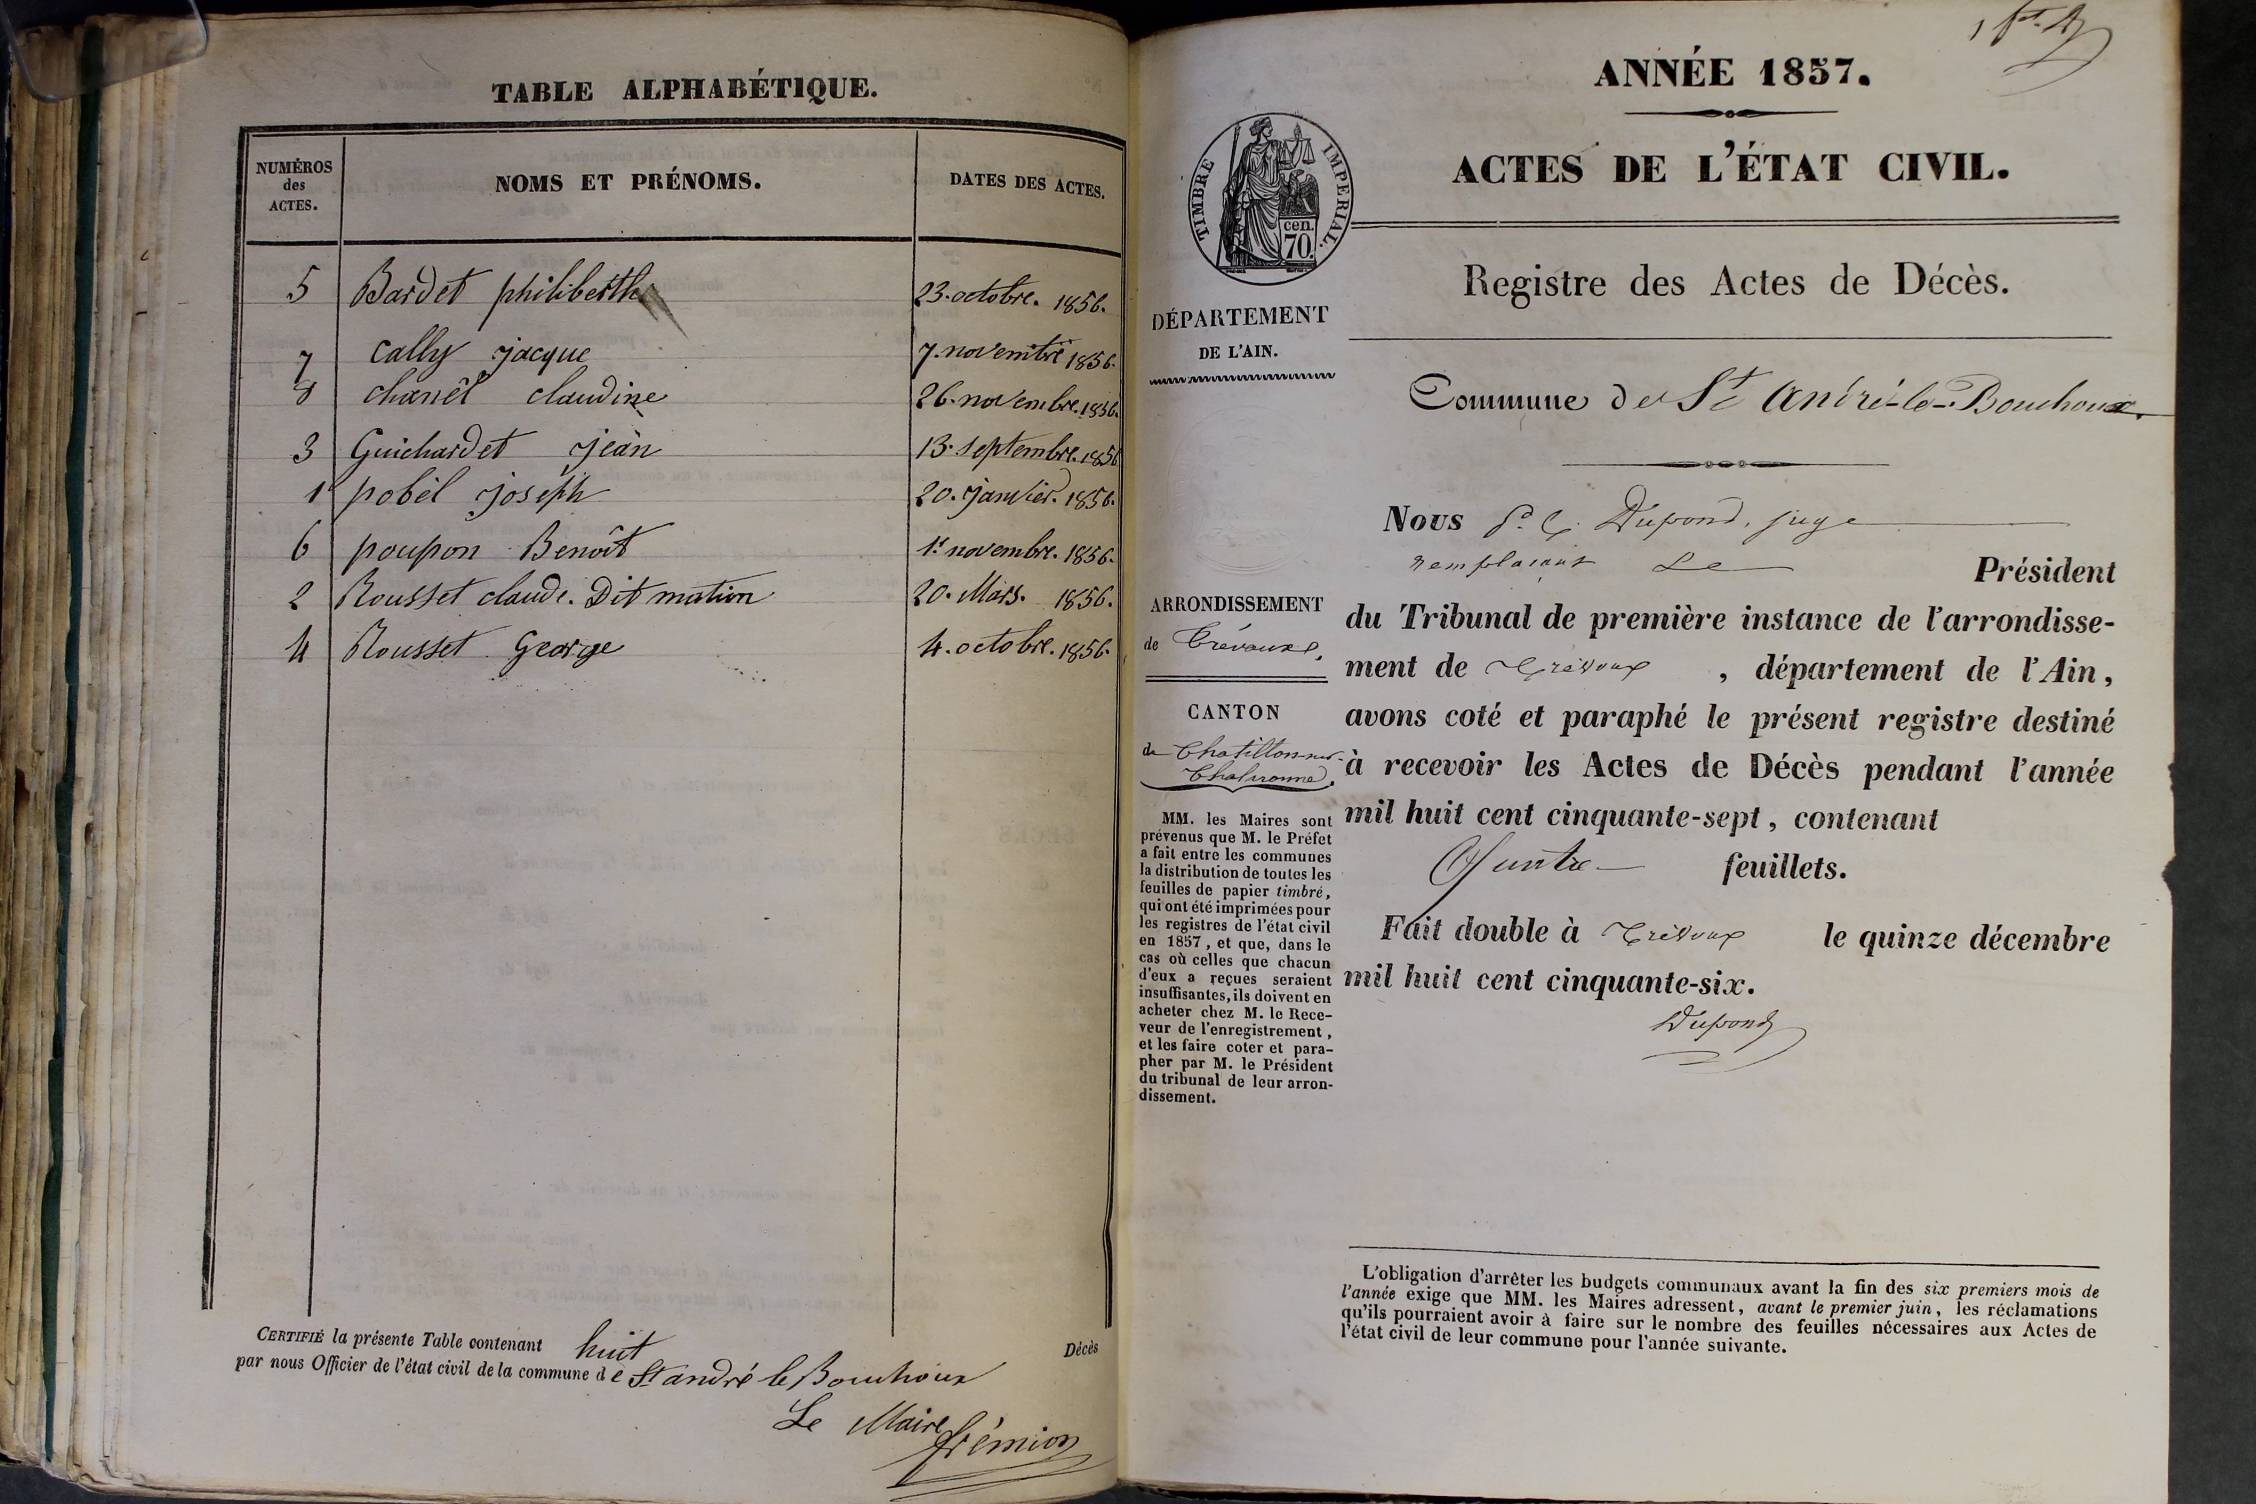 TABLE ALPHABÉTIQUE.
NUMÉROS des ACTES. NOMS ET PRÉNOMS. DATES DES ACTES.
5 Bardet philiberthe 23. octobre. 1856.
7 Cally jacque 7. novembre 1856.
8 chanêl claudine 26. novembre. 1856.
3 Guichardet jean 13. septembre. 1856
1 pobèl joseph 20. janvier. 1856.
6 poupon Benoît 1er novembre. 1856.
2 Rousset claude. Dit mation 20. Mars. 1856.
4 Rousset George 4. octobre. 1856.
CERTIFIÉ la présente Table contenant huit Décès
par nous Officier de l'état civil de la commune de St andré le Bouchoux
Le Maire
frémion
ANNÉE 1857.
ACTES DE L'ÉTAT CIVIL.
TIMBRE IMPERIAL.
cen.
70.
Registre des Actes de Décès.
DÉPARTEMENT
DE L'AIN.
Commune de St André-le-Bouchoux.
ARRONDISSEMENT
de Trévoux,
CANTON
de Chatillon sur
Chalaronne.
MM. les Maires sont
prévenus que M. le Préfet
a fait entre les communes
la distribution de toutes les
feuilles de papier timbré,
qui ont été imprimées pour
les registres de l'état civil
en 1857, et que, dans le
cas où celles que chacun
d'eux a reçues seraient
insuffisantes, ils doivent en
acheter chez M. le Rece-
veur de l'enregistrement,
et les faire coter et para-
pher par M. le Président
du tribunal de leur arron-
dissement.
Nous Dupond, juge
remplaçant Le Président
du Tribunal de première instance de l'arrondisse-
ment de Trévoux, département de l'Ain,
avons coté et paraphé le présent registre destiné
à recevoir les Actes de Décès pendant l'année
mil huit cent cinquante-sept, contenant
feuillets.
Fait double à Trévoux le quinze décembre
mil huit cent cinquante-six.
Dupond
L'obligation d'arrêter les budgets communaux avant la fin des six premiers mois de
l'année exige que MM. les Maires adressent, avant le premier juin, les réclamations
qu'ils pourraient avoir à faire sur le nombre des feuilles nécessaires aux Actes de
l'état civil de leur commune pour l'année suivante.